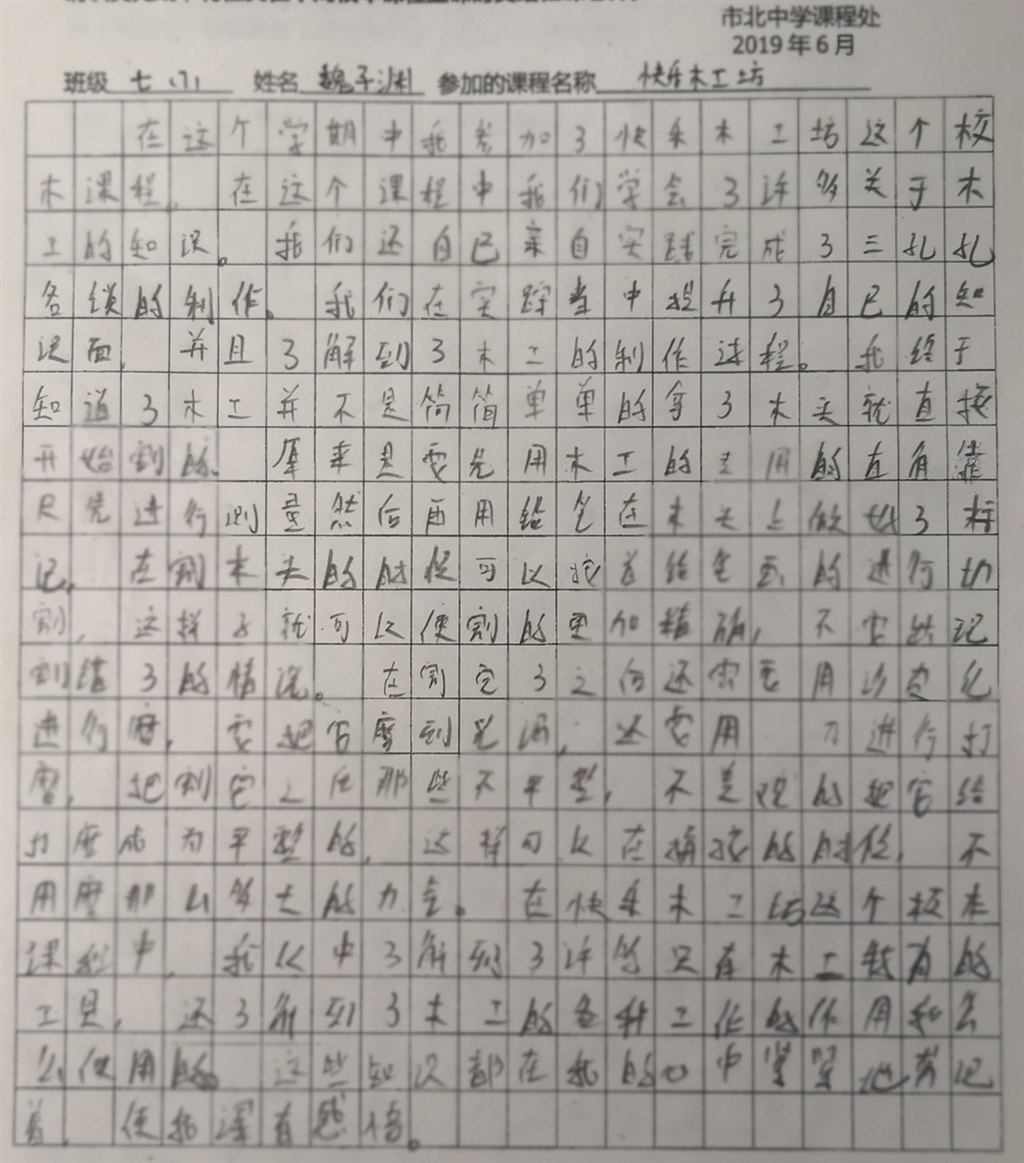 市北中学课程处
2019年6月
班级 七(1) 姓名 魏子渊 参加的课程名称 快乐木工坊
在这个学期中我参加了快乐木工坊这个校
本课程。在这个课程中我们学会了许多关于木
工的知识。我们还自己亲自实践完成了三孔孔
各锁的制作。我们在实践当中提升了自己的知
识面,并且了解到了木工的制作过程。我终于
知道了木工并不是简简单单的拿了木头就直接
开始割的。原来是要先用木工的专用的直角靠
尺先进行测量然后再用铅笔在木头上做好了标
记。在割木头的时候可以按着铅笔画的进行切
割,这样子就可以使割的更加精确,不会出现
割错了的情况。在割完了之后还需要用砂皮纸
进行磨,要把它磨到光滑,还要用 刀进行打
磨,把割完之后那些不平整,不美观的把它给
打磨成为平整的,这样可以在拼接的时候,不
用磨那么多大的力气。在快乐木工坊这个校本
课程中,我从中了解到了许多只有木工我有的
工具,还了解到了木工的各种工作的作用和怎
么使用的。这些知识都在我的心中坚坚地劳记
着,使我深有感悟。